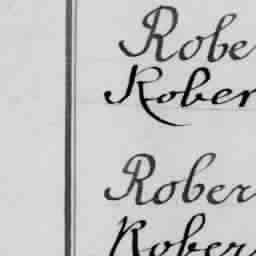 Robe
Rober
Rober
Rober